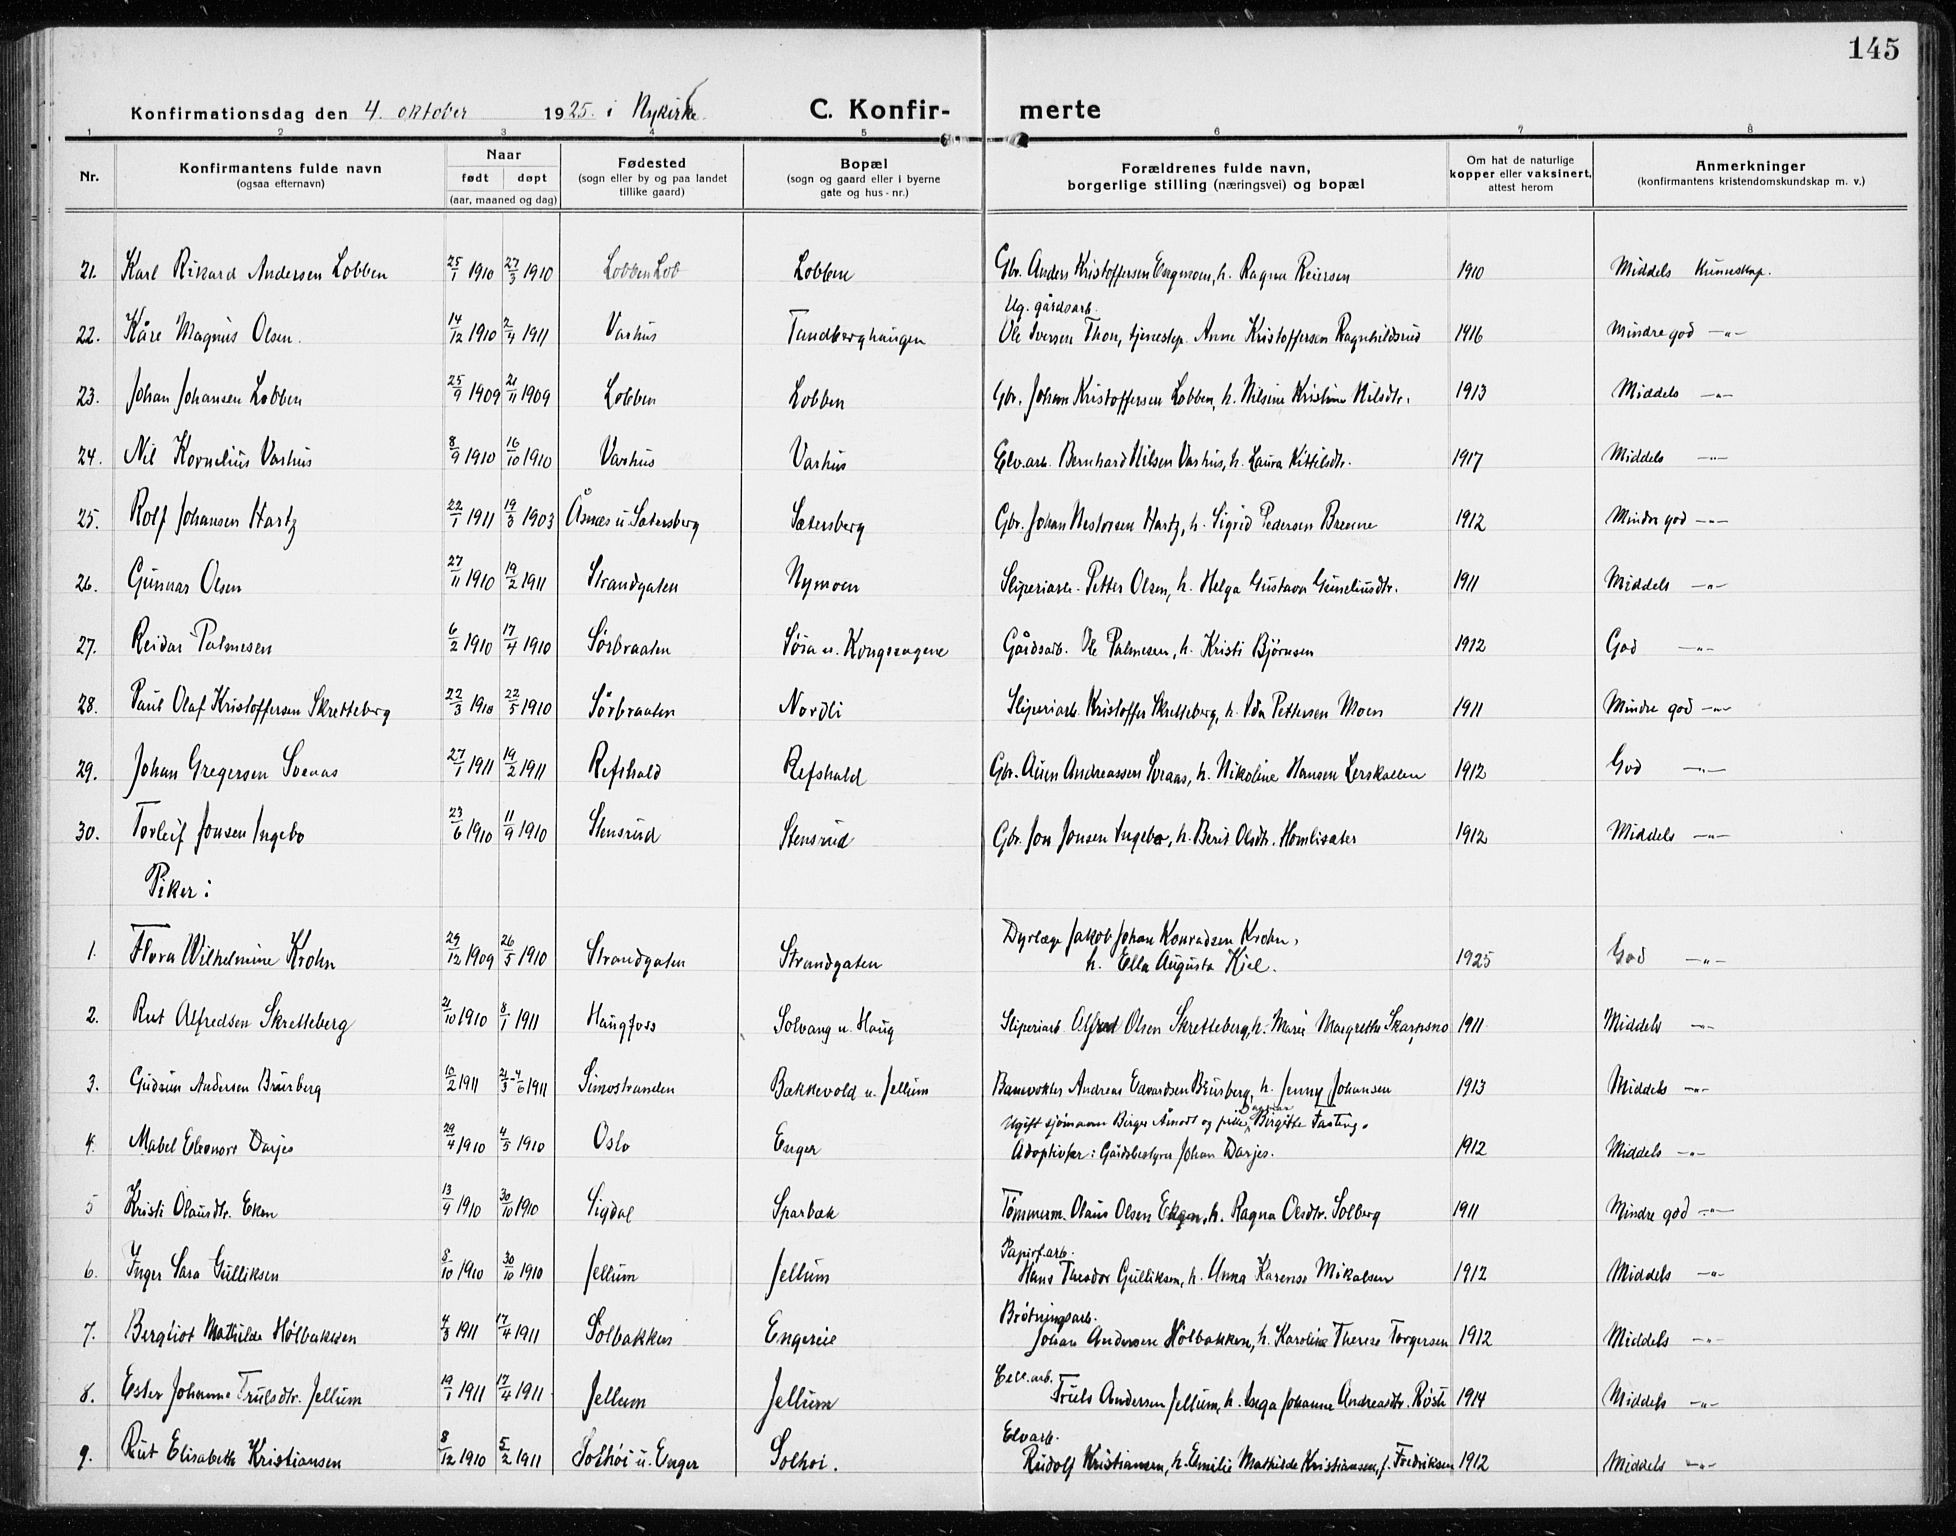 145
Konfirmationsdag den 4. oktober 1925. i Nykirke. C. Konfir- merte
1 2 3 4 5 6 7 8
Nr. Konfirmantens fulde navn (ogsaa efternavn) Naar født døpt (aar, maaned og dag) Fødested (sogn eller by og paa landet tillike gaard) Bopæl (sogn og gaard eller i byerne gate og hus-nr.) Forældrenes fulde navn, borgerlige stilling (næringsvei) og bopæl Om hat de naturlige kopper eller vaksinert, attest herom Anmerkninger (konfirmantens kristendomskundskap m. v.)
21. Karl Rikard Andersen Lobben 25/1 1910 27/3 1910 Lobben Lob Lobben Gbr. Anders Kristoffersen Engmoen, h. Ragna Reiersen 1910 Middels Kunnskap.
Ug. gårdsarb.
22. Kåre Magnus Olsen. 14/12 1910 2/4 1911 Varhus Tandberghaugen Ole Iversen Thon, tjenestep. Anne Kristoffersen Ragnhildsrud 1916 Mindre god -"-
23. Johan Johansen Lobben 25/9 1909 21/11 1909 Lobben Lobben Gbr. Johan Kristoffersen Lobben, h. Nilsine Kristine Nilsdtr. 1913 Middels -"-
24. Nil Kornelius Varhus 8/9 1910 16/10 1910 Varhus Varhus Elv.arb. Bernhard Nilsen Varhus, h. Laura Kittilsdtr. 1917 Middels -"-
25. Rolf Johansen Hartz 22/1 1911 19/3 1903 Åsnæs u. Sætersberg Sætersberg Gbr. Johan Nestorsen Hartz, h. Sigrid Pedersen Brenne 1912 Mindre god -"-
26. Gunnar Olsen 27/11 1910 19/2 1911 Strandgaten Nymoen Sliperiarb. Petter Olsen, h. Helga Gustava Guneliusdtr. 1911 Middels -"-
27. Reidar Palmesen 6/2 1910 17/4 1910 Sørbraaten Søra u. Kongssagene Gårdsarb. Ole Palmesen, h. Kristi Bjørnsen 1912 God -"-
28. Paul Olaf Kristoffersen Skretteberg 22/3 1910 22/5 1910 Sørbraaten Nordli Sliperiarb. Kristoffer Skretteberg, h. Ida Pettersen Moen 1911 Mindre god -"-
29. Johan Gregersen Sveaas 27/1 1911 19/2 1911 Refshald Refshald Gbr. Auen Andreassen Sveaas, h. Nikoline Hansen Lerskallen 1912 God -"-
30. Torleif Jonsen Ingebo 23/6 1910 11/9 1910 Stensrud Stensrud Gbr. Jon Jonsen Ingebo, h. Berit Olsdtr. Homlisæter 1912 Middels -"-
Piker:
Dyrlæge Jakob Johan Konradsen Krohn,
1. Flora Wilhelmine Krohn 29/12 1909 26/5 1910 Strandgaten Strandgaten h. Ella Augusta Kiel. 1925 God -"-
2. Rut Alfredsen Skretteberg 21/10 1910 8/1 1911 Haugfoss Solvang u. Haug Sliperiarb. Alfred Olsen Skretteberg, h. Marie Margrethe Skarpsno 1911 Middels -"-
3. Gudrun Andersen Brurberg 10/2 1911 21/3-4/6 1911 Simostranden Bækkevold u. Jellum Banevokter Andreas Edvardsen Brurberg, h. Jenny Johansen 1913 Middels -"-
Ugift sjømann Birger Arnodt og pike Dagmar Birgitte Fasting.
4. Mabel Eleonore Darjes 29/4 1910 4/5 1910 Oslo Enger Adoptivfar: Gårdsbestyrer Johan Darjes. 1912 Middels -"-
5 Kristi Olausdtr. Eken 13/9 1910 30/10 1910 Sigdal Sparbæk Tømmerm. Olaus Olsen Eken, h. Ragna Olsdtr. Solberg 1911 Mindre god -"-
Papirf.arb.
6. Inger Sara Gulliksen 8/10 1910 30/10 1910 Jellum Jellum Hans Theodor Gulliksen, h. Anna Karense Mikalsen 1912 Middels -"-
Brøtningsarb.
7. Bergliot Mathilde Hølbakken 4/3 1911 17/4 1911 Solbakken Engereie Johan Andersen Hølbakken, h. Karoline Therese Torgersen 1912 Middels -"-
Cell.arb.
8. Ester Johanne Trulsdtr. Jellum 19/1 1911 17/4 1911 Jellum Jellum Truls Andersen Jellum, h. Inga Johanne Andreasdtr. Røsti 1914 Middels -"-
Elvarb.
9. Rut Elisabeth Kristiansen 8/12 1910 5/2 1911 Solhøi u. Enger Solhøi. Rudolf Kristiansen, h. Emilie Mathilde Kristiansen, f. Fredriksen 1912 Middels -"-